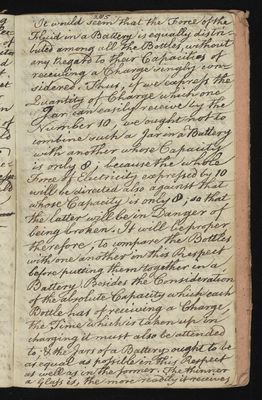 285
It would seem that the Force of the
Fluid in a Battery is equally distri-
buted among all the Bottles, without
any Regard to their Capacities of
receiving a Charge singly con-
sidered. Thus, if we express the
Quantity of Charge which one
Jar can easily receive by the
Number 10, we ought not to
combine such a Jar in a Battery
with another whose Capacity
is only 8; because the whole
Force of Electricity expressed by 10
will be directed also against that
whose Capacity is only 8; so that
the latter will be in Danger of
being broken. It will be proper
therefore, to compare the Bottles
with one another in this Respect
before putting them together in a
Battery. Besides the Consideration
of the absolute Capacity which each
Bottle has of receiving a Charge,
the Time which is taken up in
charging it must also be attended
to; & the Jars of a Battery ought to be
as equal as possible in this Respect
as well as in the former. The thinner
a Glass is, the more readily it receives